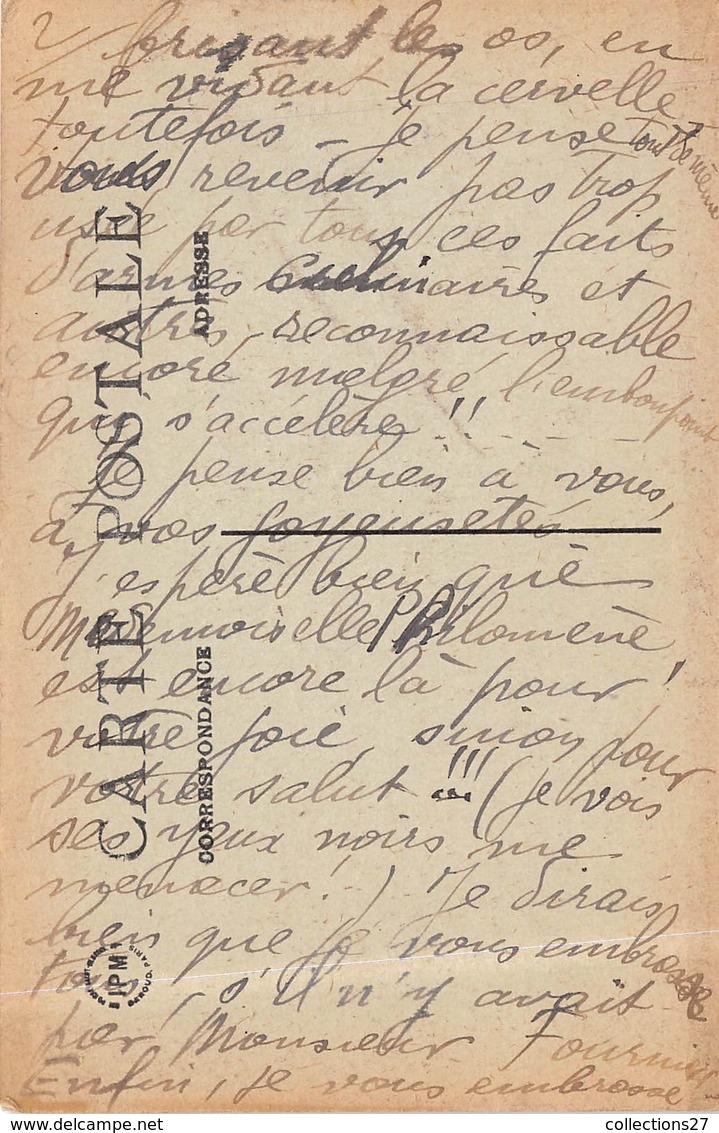 2/ brisant les os, en
me vidant la cervelle
toutefois – Je pense tout de même
vous revenir pas trop
usée par tous ces faits
d'armes culinaires et
autres, reconnaissable
encore malgré l'embonpoint
qui s'accélère !!
Je pense bien à vous,
à vos joyeusetés
J'espère bien que
Mademoiselle Philomène
est encore là pour
votre joie, sinon pour
votre salut !!! (je vois
ses yeux noirs me
menacer !) Je dirais
bien que je vous embrasse
tous, s'il n'y avait
pas Monsieur Fournier
Enfin, je vous embrasse
CARTE POSTALE
CORRESPONDANCE
ADRESSE
IPM
PARIS
collections27